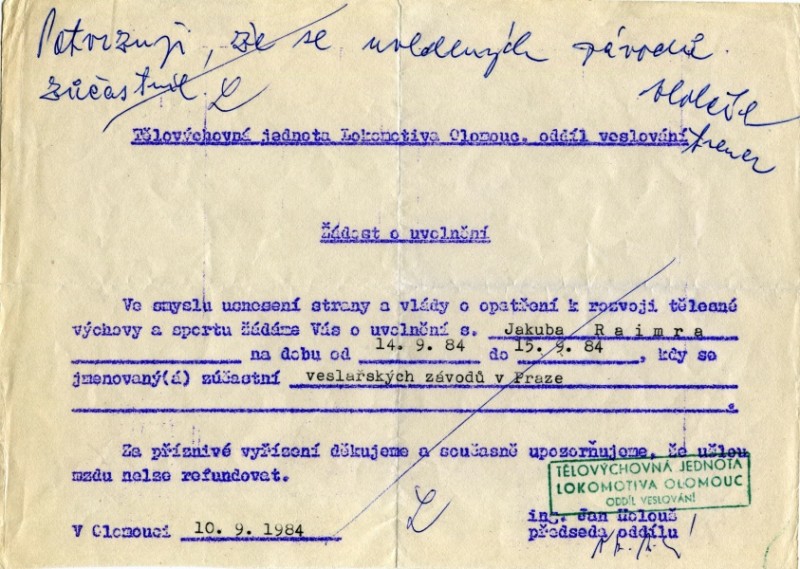 Potvrzuji, že se uvedených závodů
zúčastnil.
trener
Tělovýchovná jednota Lokomotiva Olomouc, oddíl veslování
Žádost o uvolnění
Ve smyslu usnesení strany a vlády o opatření k rozvoji tělesné
výchovy a sportu žádáme Vás o uvolnění s. Jakuba Raimra
na dobu od 14. 9. 84 do 15. 9. 84, kdy se
jmenovaný(á) zúčastní veslařských závodů v Praze
.
Za příznivé vyřízení děkujeme a současně upozorňujeme, že ušlou
mzdu nelze refundovat.
TĚLOVÝCHOVNÁ JEDNOTA
LOKOMOTIVA OLOMOUC
ODDÍL VESLOVÁNÍ
V Olomouci 10. 9. 1984
ing. Jan Holouš
předseda oddílu